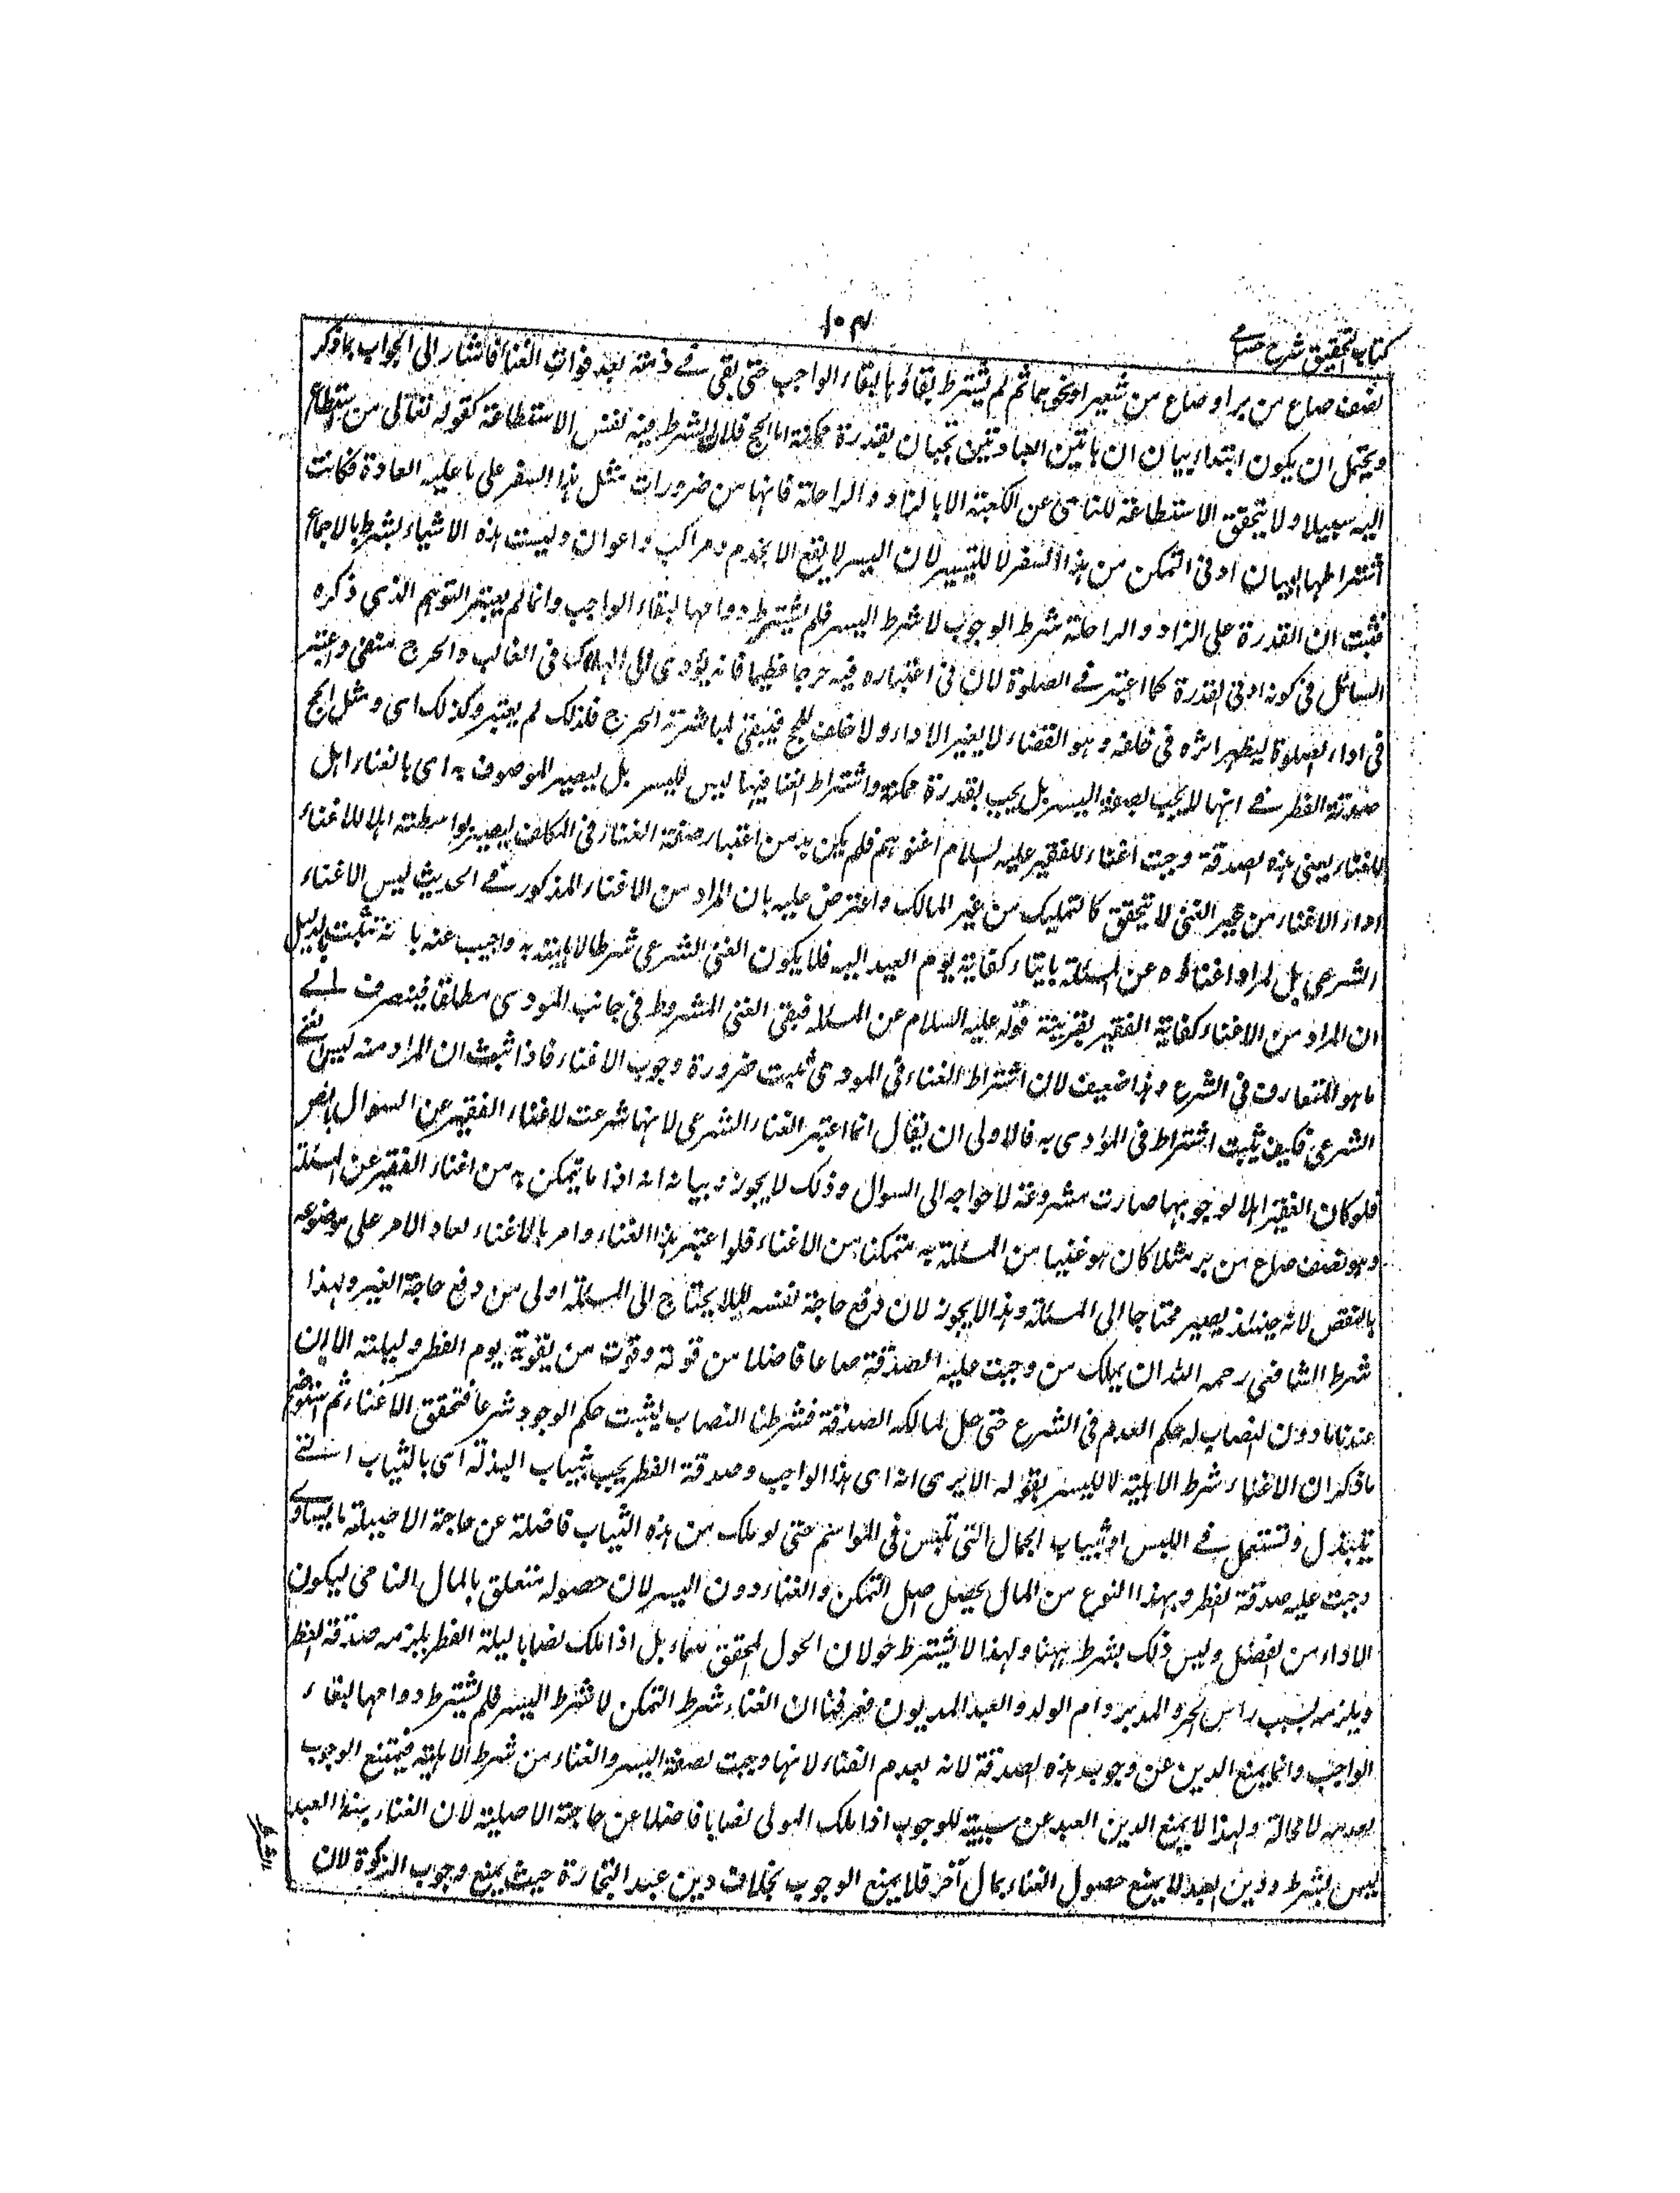 كتاب التحقيق شرح حسامي
١٠٣
نصف صاع من بر او صاع من شعير او نحوهما ثم لم يشترط بقاؤها لبقاء الواجب حتى بقى في ذمته بعد فوات الغناء فاشار الى الجواب بما ذكر
ويحتمل ان يكون ابتداء بيان ان هاتين العبادتين تجبان بقدرة ممكنة اما الحج فلان الشرط فيه نفس الاستطاعة كقوله تعالى من استطاع
اليه سبيلا ولا يتحقق الاستطاعة للنائي عن الكعبة الا بالزاد والراحلة فانهما من ضرورات مثل هذا السفر على ما عليه العادة فكانت
اشتراطهما لبيان ادنى التمكن من هذا السفر لا لليسر لان اليسر لا يقع الا بخدم ومراكب واعوان وليست هذه الاشياء بشرط بالاجماع
فثبت ان القدرة على الزاد والراحلة شرط الوجوب لا شرط اليسر فلم يشترط دوامها لبقاء الواجب وانما لم يعتبر التوهم الذي ذكره
السائل في كونه ادنى القدرة كما اعتبر في الصلوة لان في اعتباره فيه حرجا عظيما فانه يؤدى الى الهلاك في الغالب والحرج منفى واعتبر
في اداء الصلوة ليظهر اثره في خلفه وهو القضاء لا لعين الاداء ولا خلف للحج فيبقى لمباشرته الحرج فلذلك لم يعتبر وكذلك اى ومثل الحج
صدقة الفطر في انها لا يجب بصفة اليسر بل يجب بقدرة ممكنة واشتراط الغنا فيها ليس لليسر بل ليصير الموصوف به اى بالغناء اهل
للاغناء يعنى هذه الصدقة وجبت اغناء للفقير عليه السلام اغنوهم فلم يكن بد من اعتبار صفة الغناء في المكلف ليصير بواسطته اهلا للاغناء
اذ الاغناء من غير الغنى لا يتحقق كالتمليك من غير المالك واعترض عليه بان المراد من الاغناء المذكور في الحديث ليس الاغناء
الشرعى بل المراد اغناؤه عن المسئلة بايتاء كفاية يوم العيد اليه فلا يكون الغنى الشرعى شرطا لاهليته به واجيب عنه بانه ثبت بالدليل
ان المراد من الاغناء كفاية الفقير بقرينة قوله عليه السلام عن المسئلة فبقى الغنى المشروط في جانب المودى مطلقا فينصرف الى
ما هو المتعارف في الشرع وهذا ضعيف لان اشتراط الغناء في المودى ثبت ضرورة وجوب الاغناء فاذا ثبت ان المراد منه ليس الغنى
الشرعى فكيف يثبت اشتراط في المؤدى به فالاولى ان يقال انما اعتبر الغناء الشرعى لانها شرعت لاغناء الفقير عن السوال بالنص
فلو كان الفقير اهلا لوجوبها صارت مشروعة لاحواجه الى السوال وذلك لا يجوز وبيانه انه اذا ما يتمكن به من اغناء الفقير عن المسئلة
وهو نصف صاع من بر مثلا كان هو غنيا من المسئلة به متمكنا من الاغناء فلو اعتبر هذا الغناء وامر بالاغناء لعاد الامر على موضوعه
بالنقض لانه حينئذ يصير محتاجا الى المسئلة وهذا لا يجوز لان دفع حاجة نفسه لئلا يحتاج الى المسئلة اولى من دفع حاجة الغير ولهذا
شرط الشافعى رحمه الله ان يملك من وجبت عليه الصدقة صاعا فاضلا من قوته وقوت من يقوته يوم الفطر وليلته الا ان
عندنا ما دون النصاب له حكم العدم في الشرع حتى حل لمالكه الصدقة فشرطنا النصاب ليثبت حكم الوجود شرعا فتحقق الاغناء ثم استوضح
ما ذكر ان الاغناء شرط الاهلية لا لليسر بقوله الا يرى انه اى هذا الواجب وصدقة الفطر يجب بثياب البذلة اى بالثياب التى
تبتذل وتستعمل في اللبس او ثياب الجمال التى تلبس في المواسم حتى لو ملك من هذه الثياب فاضلة عن حاجة الاصيلة ما يساوى
وجبت عليه صدقة الفطر وبهذا النوع من المال يحصل اصل التمكن والغناء دون اليسر لان حصوله متعلق بالمال النامى ليكون
الاداء من الفضل وليس ذلك بشرط ههنا ولهذا لا يشترط حولان الحول المحقق نماء بل اذا ملك نصابا ليلة الفطر يلزمه صدقة الفطر
ويلزمه بسبب راس الحر والمدبر وام الولد والعبد المديون فعرفنا ان الغناء شرط التمكن لا شرط اليسر فلم يشترط دوامها لبقاء
الواجب وانما يمنع الدين عن وجوب هذه الصدقة لانه يعدم الغناء لا انها وجبت بصفة اليسر والغناء من شرط الاهلية فيمتنع الوجوب
بعدمه لا محالة ولهذا لا يمنع الدين العبد عن سببية للوجوب اذا ملك المولى نصابا فاضلا عن حاجة الاصلية لان الغناء بهذا العبد
ليس بشرط ودين العبد لا يمنع حصول الغناء بمال آخر فلا يمنع الوجوب بخلاف دين عبد التجارة حيث يمنع وجوب الزكوة لان